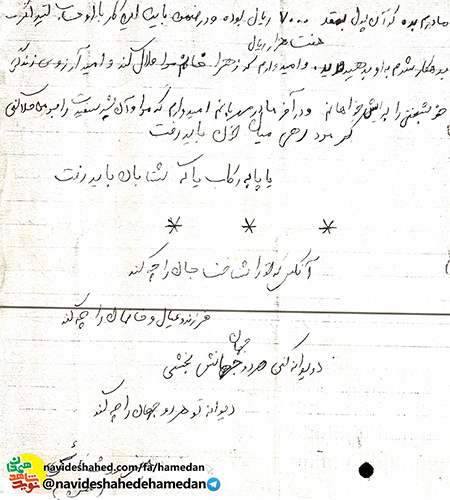 مادرم بده که آن پول بمقدار ۷۰۰۰ ریال بوده و در ضمن بابت این کار با او حساب کنید اگر
هفت هزار ریال
بدهکار شدم به او بدهید و امیدوارم که زهرا خانم مرا حلال کند و امید آرزوی زندگی
خوشبختی را برایش خواهانم و در آخر مادر مهربانم امیدوارم که مرا و آن شیر سفیدت را بر من حلال کنی
گر مرد رهی میان خون باید رفت
یا پا به رکاب یا که شتابان باید رفت
* * *
آنکس که تو را شناخت جان را چه کند
فرزند و عیال و خانمان را چه کند
جهان
دیوانه کنی هر دو جهانش بخشی
دیوانه تو هر دو جهان را چه کند
navideshahed.com/fa/hamedan
@navideshahedehamedan